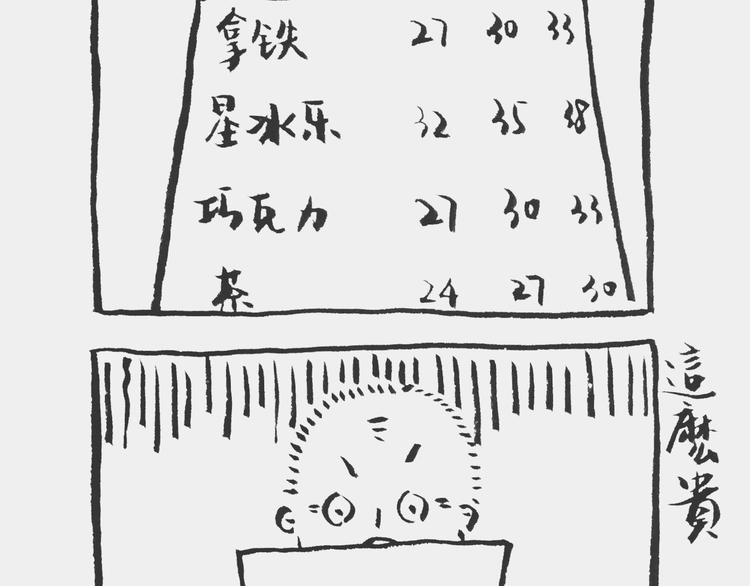 拿铁 27 30 33
星冰乐 32 35 38
巧克力 27 30 33
茶 24 27 30
這麼貴